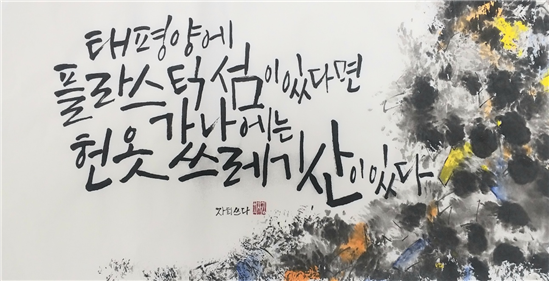 태평양에
플라스틱 섬이 있다면
가나에는
헌옷 쓰레기 산이 있다
쓰다